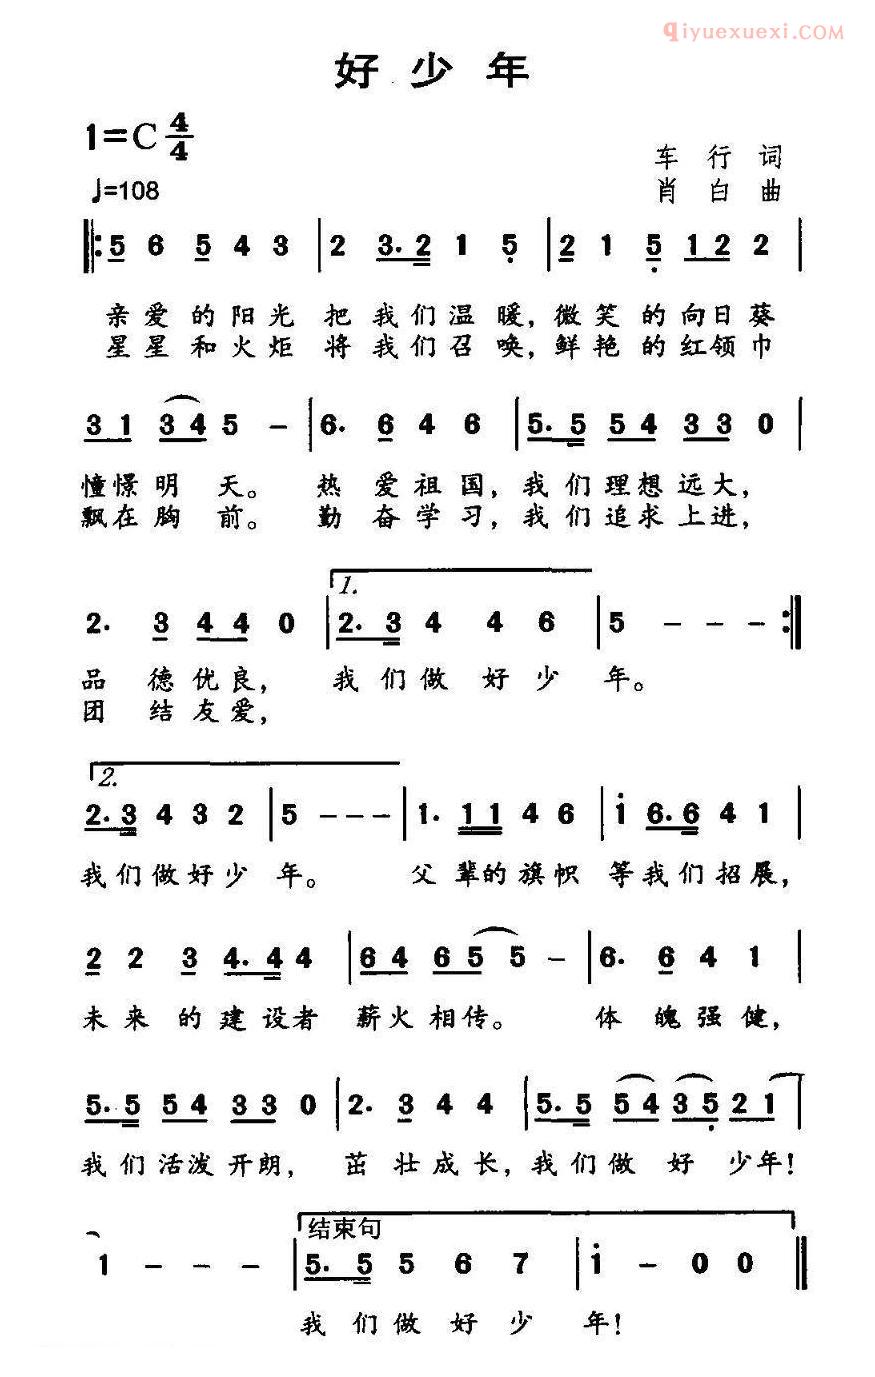 qiyuexuexi.COM
好少年
1=C 4/4
车行词
♩=108
肖白曲
‖:5 6 5 4 3 | 2 3. 2 1 5 | 2 1 5 1 2 2 |
亲爱的阳光 把我们温暖,微笑的向日葵
星星和火炬 将我们召唤,鲜艳的红领巾
3 1 3 4 5 - | 6. 6 4 6 | 5. 5 5 4 3 3 0 |
憧憬明天。 热爱祖国,我们理想远大,
飘在胸前。 勤奋学习,我们追求上进,
1.
2. 3 4 4 0 | 2. 3 4 4 6 | 5 - - - :‖
品德优良, 我们做好少年。
团结友爱,
2.
2. 3 4 3 2 | 5 - - - | 1. 1 1 4 6 | i 6. 6 4 1 |
我们做好少年。 父辈的旗帜 等我们招展,
2 2 3 4. 4 4 | 6 4 6 5 5 - | 6. 6 4 1 |
未来的建设者 薪火相传。 体魄强健,
5. 5 5 4 3 3 0 | 2. 3 4 4 | 5. 5 5 4 3 5 2 1 |
我们活泼开朗, 茁壮成长,我们做好少年!
结束句
1 - - - | 5. 5 5 6 7 | i - 0 0 ‖
我们做好少年!